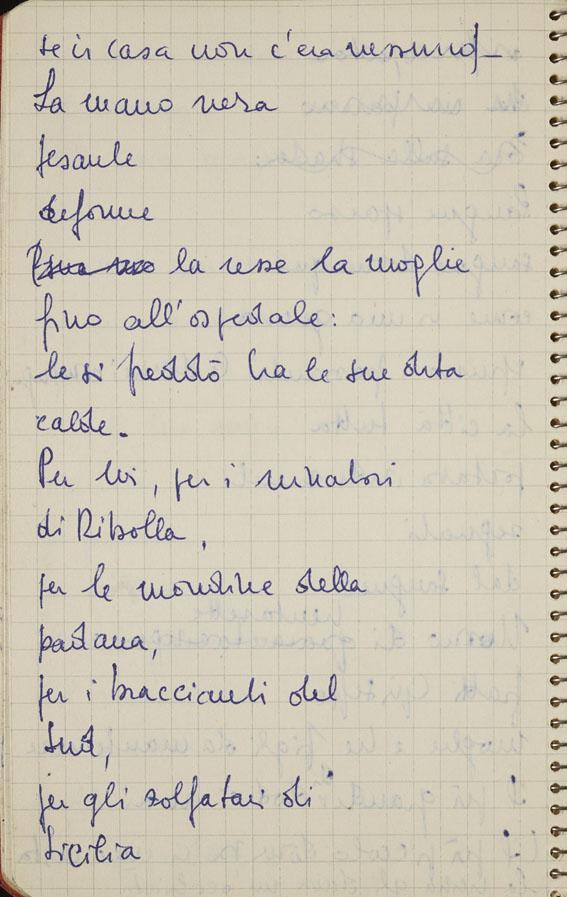 se in casa non c'era nessuno –
La mano nera
pesante
deforme
la resse la moglie
fino all'ospedale:
le si freddò tra le sue dita
calde.
Per lui, per i minatori
di Ribolla,
per le mondine della
padana,
per i braccianti del
Sud,
per gli zolfatari di
Sicilia